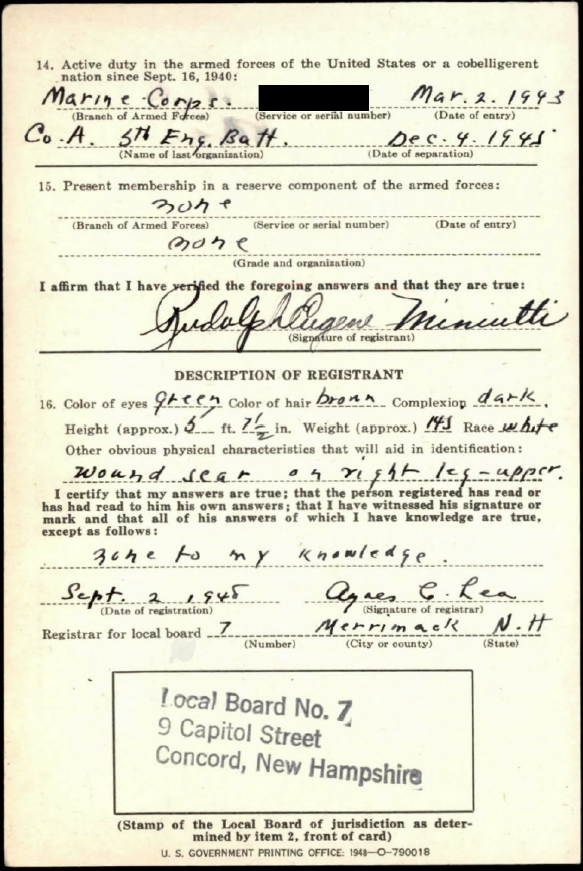 14. Active duty in the armed forces of the United States or a cobelligerent
nation since Sept. 16, 1940:
Marine Corps. Mar. 2. 1943
(Branch of Armed Forces) (Service or serial number) (Date of entry)
Co. A. 5th Eng. Batt. Dec. 4. 1945
(Name of last organization) (Date of separation)
15. Present membership in a reserve component of the armed forces:
none
(Branch of Armed Forces) (Service or serial number) (Date of entry)
none
(Grade and organization)
I affirm that I have verified the foregoing answers and that they are true:
Rudolph Eugene Miniutti
(Signature of registrant)
DESCRIPTION OF REGISTRANT
16. Color of eyes green Color of hair brown Complexion dark.
Height (approx.) 5 ft. 7½ in. Weight (approx.) 145 Race white
Other obvious physical characteristics that will aid in identification:
wound scar on right leg-upper.
I certify that my answers are true; that the person registered has read or
has had read to him his own answers; that I have witnessed his signature or
mark and that all of his answers of which I have knowledge are true,
except as follows:
none to my knowledge.
Sept. 2 1948 Agnes C. Lea
(Date of registration) (Signature of registrar)
Registrar for local board 7 Merrimack N.H
(Number) (City or county) (State)
Local Board No. 7
9 Capitol Street
Concord, New Hampshire
(Stamp of the Local Board of jurisdiction as deter-
mined by item 2, front of card)
U. S. GOVERNMENT PRINTING OFFICE: 1948—O-790018